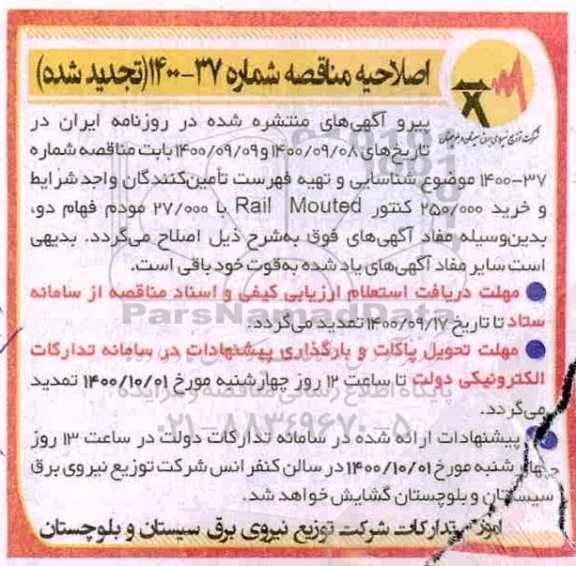 اصلاحیه مناقصه شماره ۳۷-۱۴۰۰(تجدید شده)
شرکت توزیع نیروی برق سیستان و بلوچستان
پیرو آگهی‌های منتشره شده در روزنامه ایران در
تاریخ‌های ۱۴۰۰/۰۹/۰۸ و ۱۴۰۰/۰۹/۰۹ بابت مناقصه شماره
۳۷-۱۴۰۰ موضوع شناسایی و تهیه فهرست تأمین‌کنندگان واجد شرایط
و خرید ۲۵۰/۰۰۰ کنتور Rail Mouted با ۲۷/۰۰۰ مودم فهام دو،
بدین‌وسیله مفاد آگهی‌های فوق به‌شرح ذیل اصلاح می‌گردد. بدیهی
است سایر مفاد آگهی‌های یاد شده به‌قوت خود باقی است.
● مهلت دریافت استعلام ارزیابی کیفی و اسناد مناقصه از سامانه
ستاد تا تاریخ ۱۴۰۰/۰۹/۱۷ تمدید می‌گردد.
ParsNamadData
● مهلت تحویل پاکات و بارگذاری پیشنهادات در سامانه تدارکات
الکترونیکی دولت تا ساعت ۱۲ روز چهارشنبه مورخ ۱۴۰۰/۱۰/۰۱ تمدید
پایگاه اطلاع رسانی مناقصه و مزایده
می‌گردد.
۰۲۱-۸۸۳۴۹۶۷۰-۵
● پیشنهادات ارائه شده در سامانه تدارکات دولت در ساعت ۱۳ روز
چهارشنبه مورخ ۱۴۰۰/۱۰/۰۱ در سالن کنفرانس شرکت توزیع نیروی برق
سیستان و بلوچستان گشایش خواهد شد.
امور تدارکات شرکت توزیع نیروی برق سیستان و بلوچستان